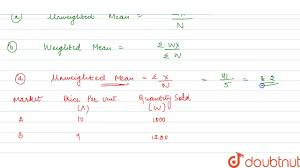 (a) Unweighted Mean = ΣX / N
(b) Weighted Mean = ΣWX / ΣW
(a) Unweighted Mean = ΣX / N = 41 / 5 = 8.2
Market Price Per Unit Quantity Sold
(X) (W)
A 10 1000
B 9 1200
doubtnut